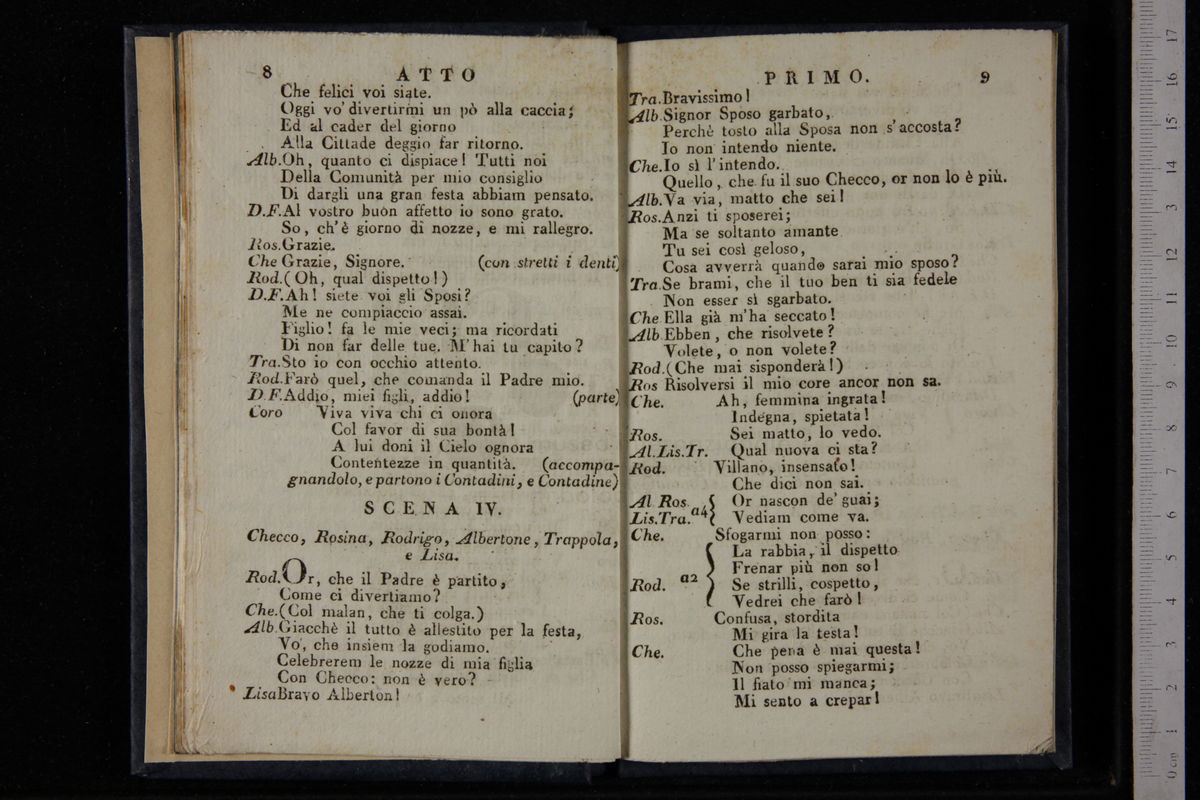 8 ATTO
Che felici voi siate.
Oggi vo' divertirmi un pò alla caccia;
Ed al cader del giorno
Alla Cittade deggio far ritorno.
Alb.Oh, quanto ci dispiace! Tutti noi
Della Comunità per mio consiglio
Di dargli una gran festa abbiam pensato.
D.F.Al vostro buòn affetto io sono grato.
So, ch'è giorno di nozze, e mi rallegro.
Ros.Grazie.
Che Grazie, Signore. (con stretti i denti)
Rod.(Oh, qual dispetto!)
D.F.Ah! siete voi gli Sposi?
Me ne compiaccio assai.
Figlio! fa le mie veci; ma ricordati
Di non far delle tue. M'hai tu capito?
Tra.Sto io con occhio attento.
Rod.Farò quel, che comanda il Padre mio.
D F.Addio, miei figli, addio! (parte)
Coro Viva viva chi ci onora
Col favor di sua bontà!
A lui doni il Cielo ognora
Contentezze in quantità. (accompa-
gnandolo, e partono i Contadini, e Contadine)
SCENA IV.
Checco, Rosina, Rodrigo, Albertone, Trappola,
e Lisa.
Rod.Or, che il Padre è partito,
Come ci divertiamo?
Che.(Col malan, che ti colga.)
Alb.Giacchè il tutto è allestito per la festa,
Vo', che insiem la godiamo.
Celebrerem le nozze di mia figlia
Con Checco: non è vero?
LisaBravo Alberton!
PRIMO. 9
Tra.Bravissimo!
Alb.Signor Sposo garbato,
Perchè tosto alla Sposa non s'accosta?
Io non intendo niente.
Che.Io sì l'intendo.
Quello, che fu il suo Checco, or non lo è più.
Alb.Va via, matto che sei!
Ros.Anzi ti sposerei;
Ma se soltanto amante
Tu sei così geloso,
Cosa avverrà quando sarai mio sposo?
Tra.Se brami, che il tuo ben ti sia fedele
Non esser sì sgarbato.
Che.Ella già m'ha seccato!
Alb.Ebben, che risolvete?
Volete, o non volete?
Rod.(Che mai sisponderà!)
Ros Risolversi il mio core ancor non sa.
Che. Ah, femmina ingrata!
Indegna, spietata!
Ros. Sei matto, lo vedo.
Al.Lis.Tr. Qual nuova ci sta?
Rod. Villano, insensato!
Che dici non sai.
Al Ros. Or nascon de' guai;
Lis.Tra. a4 Vediam come va.
Che. Sfogarmi non posso:
La rabbia, il dispetto
Frenar più non so!
Rod. a2 Se strilli, cospetto,
Vedrei che farò!
Ros. Confusa, stordita
Mi gira la testa!
Che. Che pena è mai questa!
Non posso spiegarmi;
Il fiato mi manca;
Mi sento a crepar!
0 cm 1 2 3 4 5 6 7 8 9 10 11 12 3 14 15 16 17